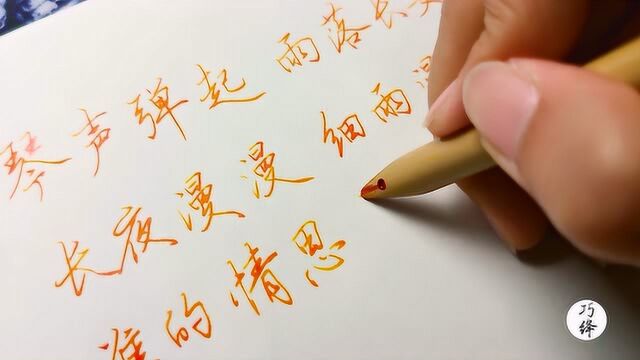 琴声弹起 雨落长
长夜漫漫 细雨
谁的情思
巧绎